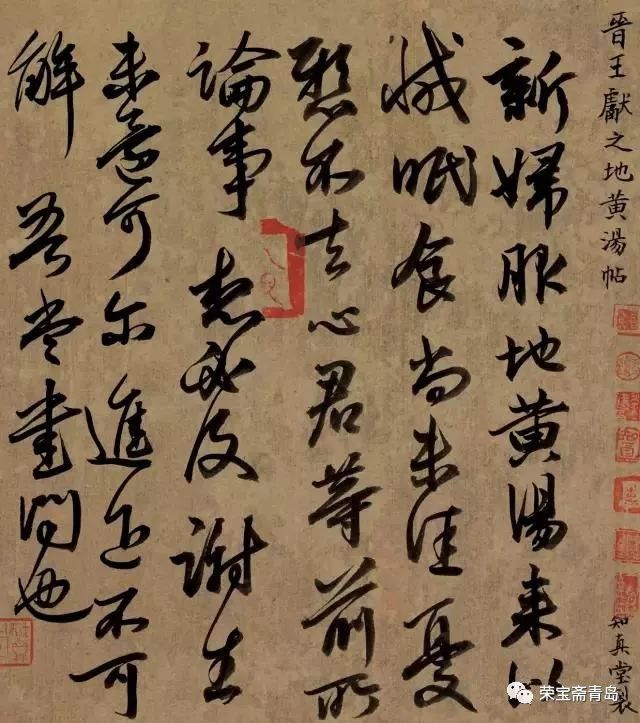 晋王獻之地黄湯帖
新婦服地黄湯来似
減眠食尚未佳憂
懸不去心君等前所
論事想必及謝生
未還可尔進退不可
解吾當書問也
知真堂製
荣宝斋青岛